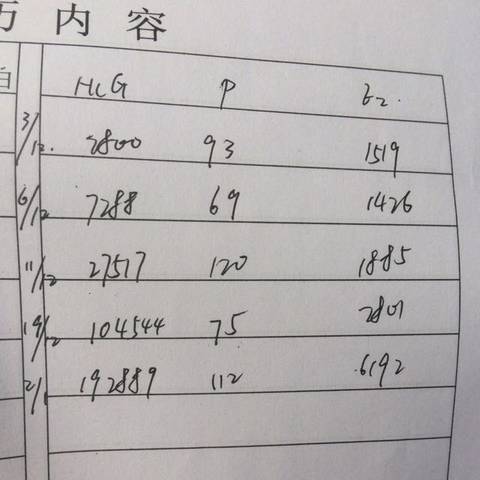 方内容
HCG P E2.
3/12. 2800 93 1519
6/12 7288 69 1426
11/12 27517 120 1885
19/12 104544 75 2801
2/1 192889 112 6192